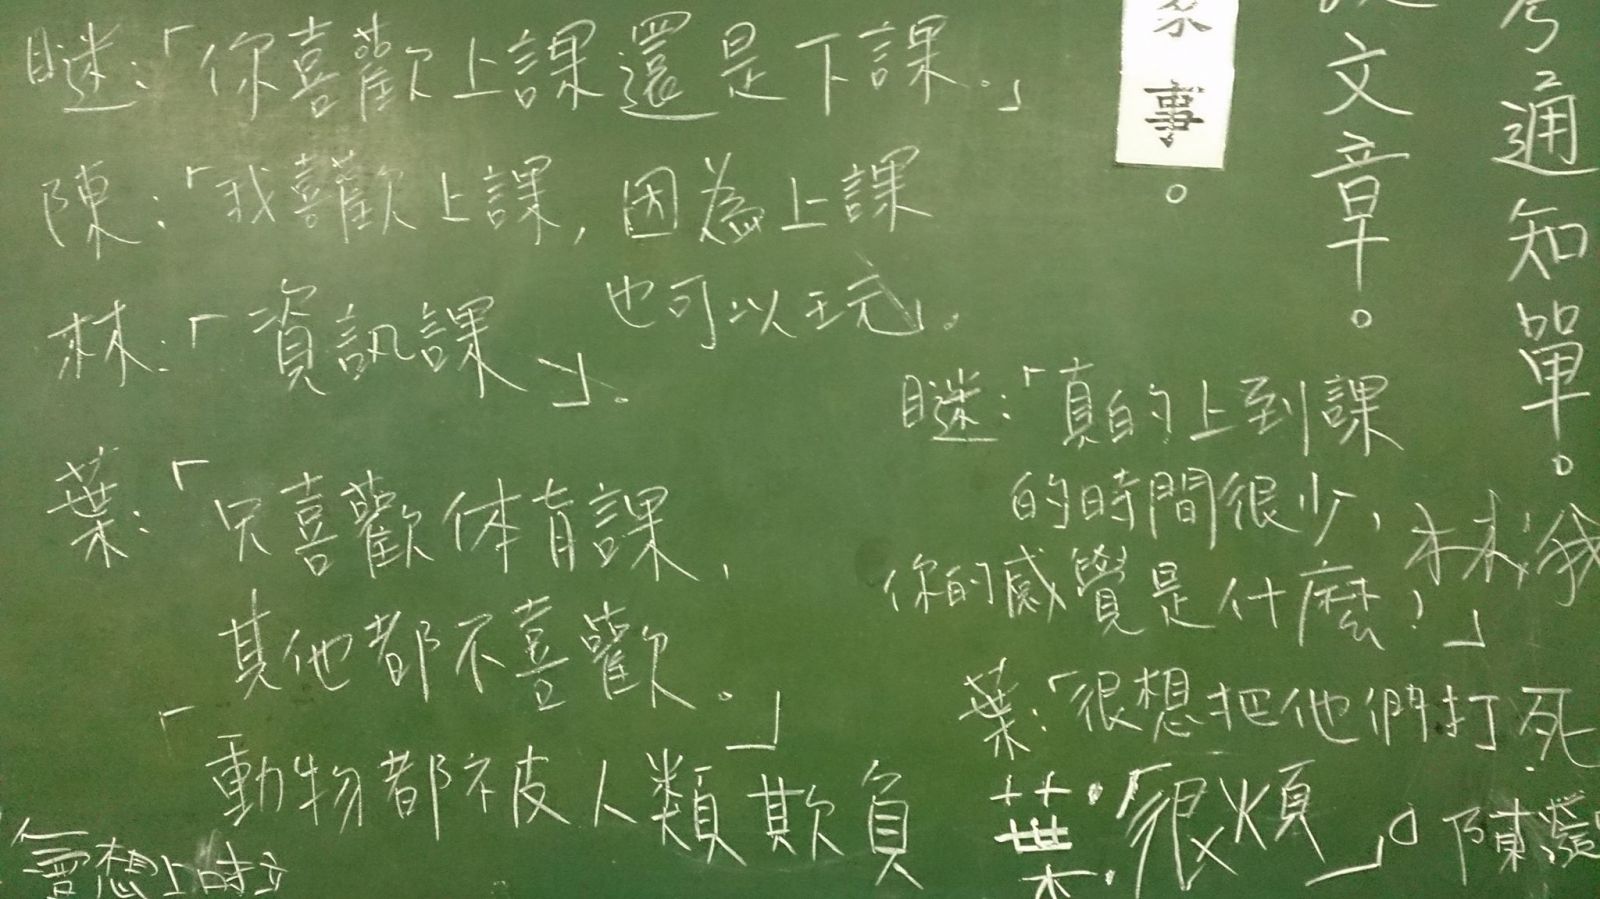 謎:「你喜歡上課還是下課。」
陳:「我喜歡上課,因為上課
也可以玩」。
林:「資訊課」.
葉:「只喜歡体育課,
其他都不喜歡。」
「動物都被人類欺負
會想上
謎:「真的上到課
的時間很少,
你的感覺是什麼?」
林:我
葉:「很想把他們打死
葉:「很煩」。
陳
事。
文章。
通知單。